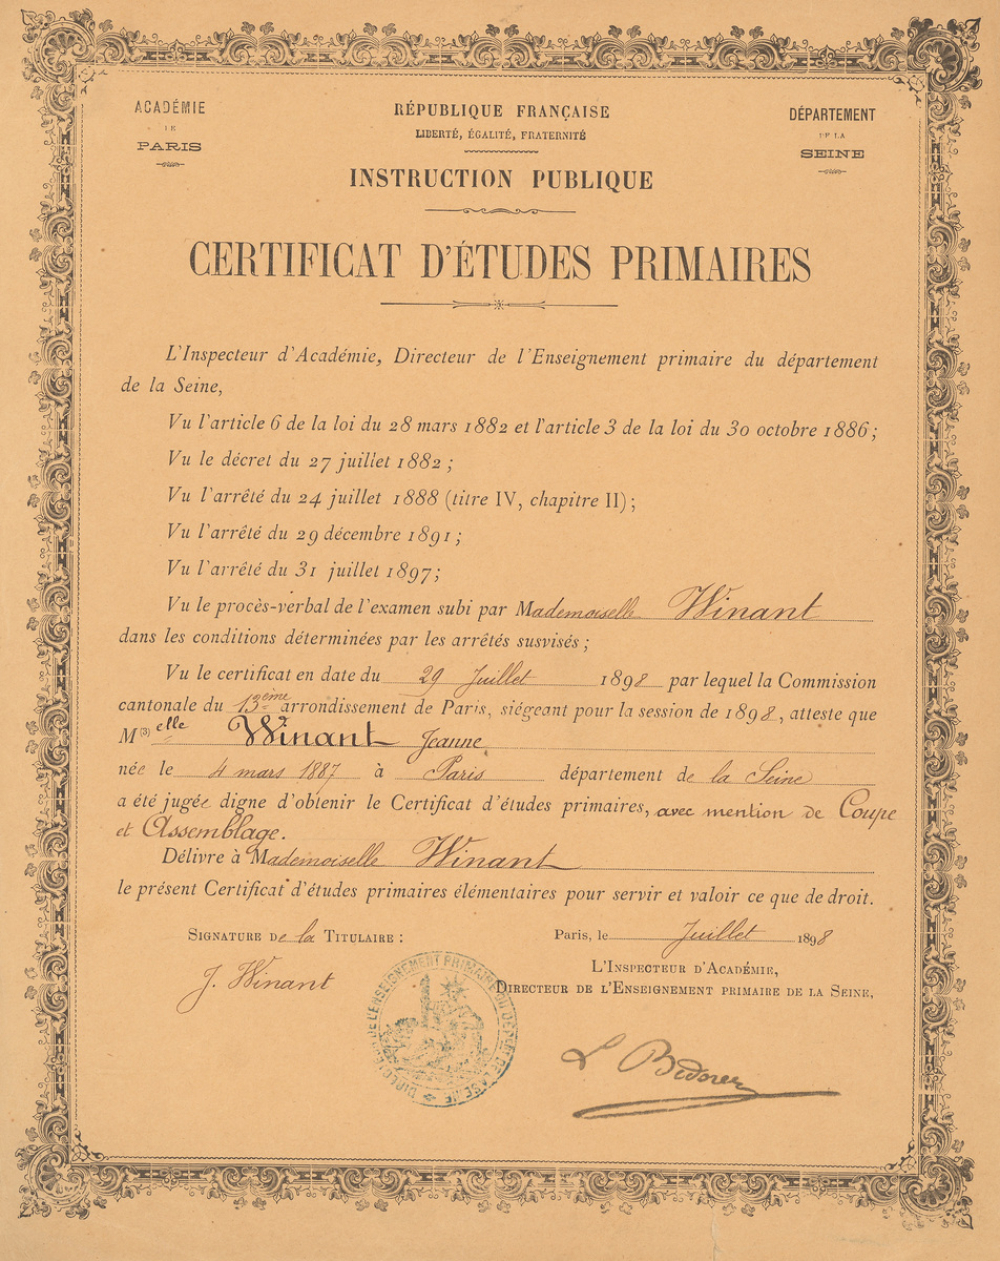 ACADÉMIE
DE
PARIS
RÉPUBLIQUE FRANÇAISE
LIBERTÉ, ÉGALITÉ, FRATERNITÉ
INSTRUCTION PUBLIQUE
DÉPARTEMENT
DE LA
SEINE
CERTIFICAT D'ÉTUDES PRIMAIRES
L'Inspecteur d'Académie, Directeur de l'Enseignement primaire du département
de la Seine,
Vu l'article 6 de la loi du 28 mars 1882 et l'article 3 de la loi du 30 octobre 1886;
Vu le décret du 27 juillet 1882;
Vu l'arrêté du 24 juillet 1888 (titre IV, chapitre II);
Vu l'arrêté du 29 décembre 1891;
Vu l'arrêté du 31 juillet 1897;
Vu le procès-verbal de l'examen subi par Mademoiselle Winant
dans les conditions déterminées par les arrêtés susvisés;
Vu le certificat en date du 29 Juillet 1898 par lequel la Commission
cantonale du 13ème arrondissement de Paris, siégeant pour la session de 1898, atteste que
M(3)elle Winant Jeanne
née le 4 mars 1887 à Paris département de la Seine
a été jugée digne d'obtenir le Certificat d'études primaires, avec mention de Coupe
et Assemblage.
Délivré à Mademoiselle Winant
le présent Certificat d'études primaires élémentaires pour servir et valoir ce que de droit.
SIGNATURE De la TITULAIRE :
Paris, le Juillet 1898
L'INSPECTEUR D'ACADÉMIE,
DIRECTEUR DE L'ENSEIGNEMENT PRIMAIRE DE LA SEINE,
J. Winant
DE L'ENSEIGNEMENT PRIMAIRE DU DÉPART. DE LA SEINE